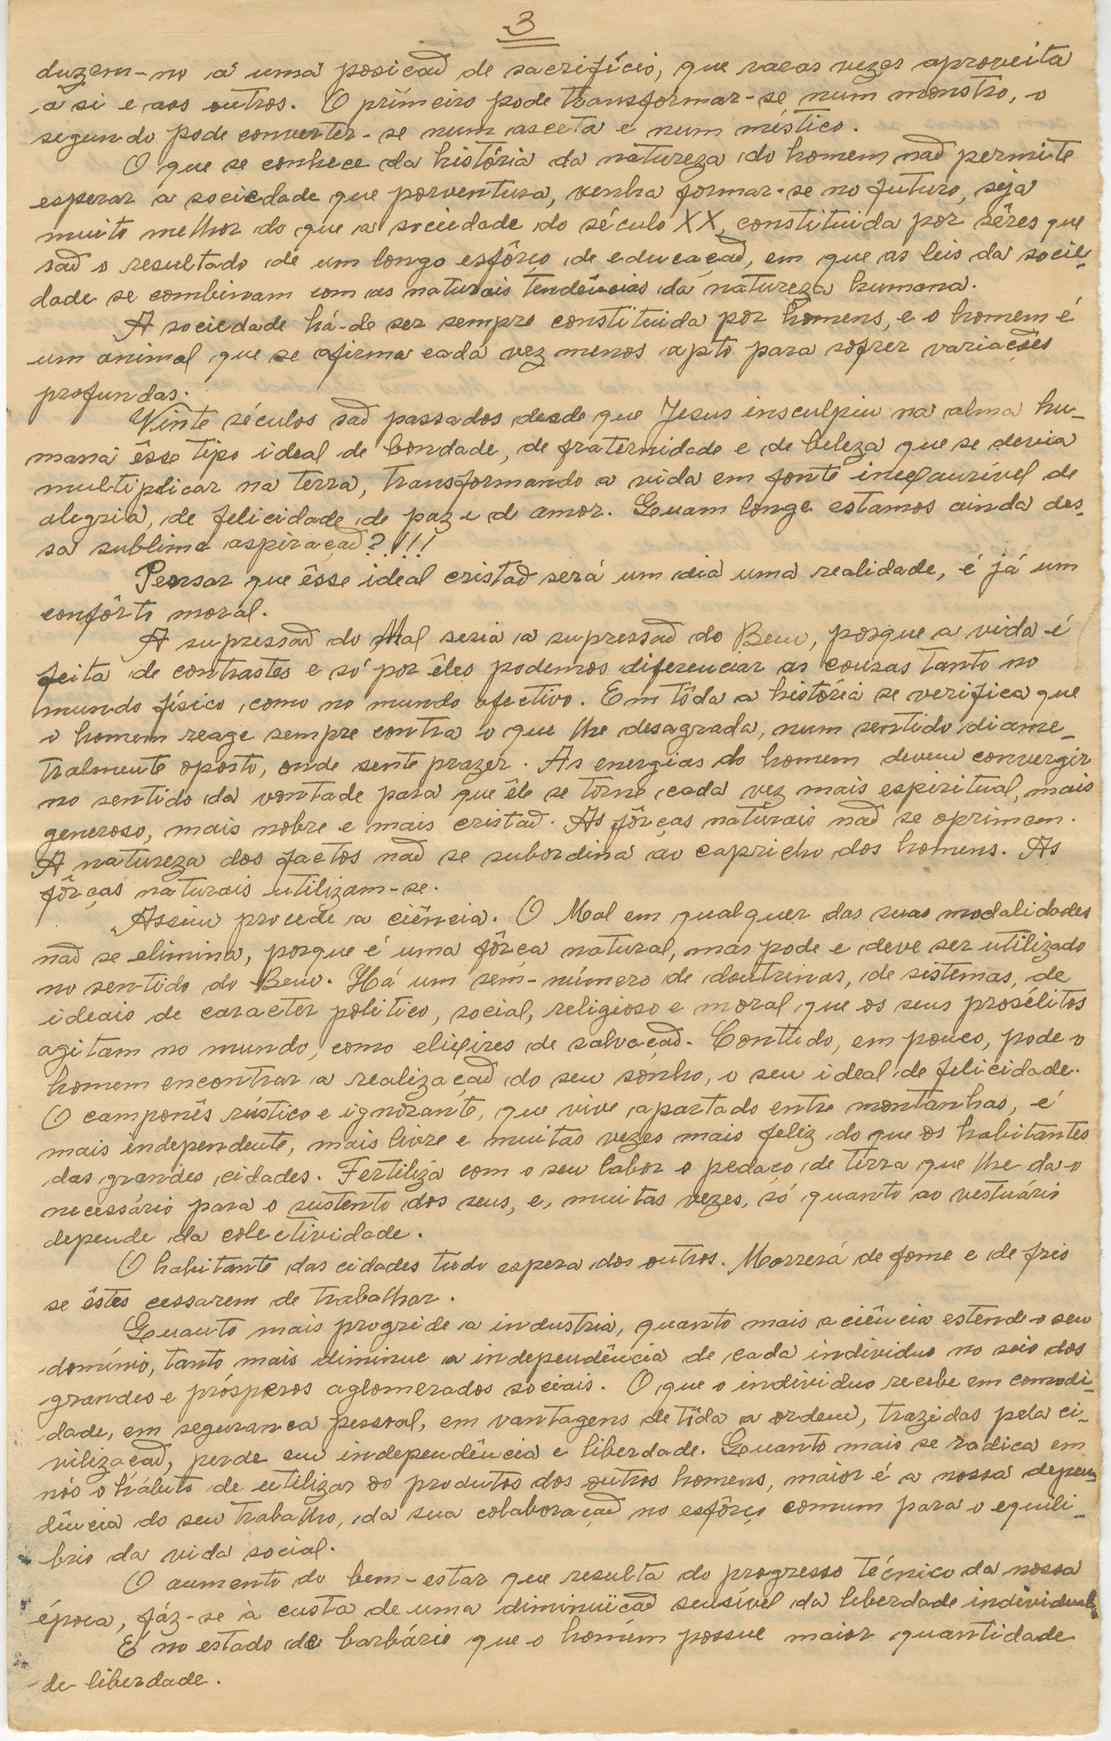 3
duzem-no a uma posicaõ de sacrifício, que raras vezes aproveita
a si e aos outros. O primeiro pode transformar-se num monstro, o
segundo pode converter-se num asceta e num místico.
O que se conhece da história da natureza do homem naõ permite
esperar a sociedade que porventura, venha formar-se no futuro, seja
muito melhor do que a sociedade do século XX, constituida por sêres que
saõ o resultado de um longo esfôrço de educaçaõ, em que as leis da socie-
dade se combinam com as naturais tendências da natureza humana.
A sociedade há-de ser sempre constituida por homens, e o homem é
um animal que se afirma cada vez menos apto para sofrer variações
profundas.
Vinte séculos saõ passados desde que Jesus insculpiu na alma hu-
mana êsse tipo ideal de bondade, de fraternidade e de beleza que se devia
multiplicar na terra, transformando a vida em fonte inexaurível de
alegria, de felicidade, de paz e de amor. Quam longe estamos ainda des-
sa sublime aspiraçaõ?!!!
Pensar que êsse ideal cristaõ será um dia uma realidade, é já um
confôrto moral.
A supressaõ do Mal seria a supressaõ do Bem, porque a vida é
feita de contrastes e só por êles podemos diferenciar as cousas tanto no
mundo físico, como no mundo afectivo. Em tôda a história se verifica que
o homem reage sempre contra o que lhe desagrada, num sentido diame-
tralmente oposto, onde sente prazer. As energias do homem devem convergir
no sentido da vontade para que êle se torne cada vez mais espiritual, mais
generoso, mais nobre e mais cristaõ. As fôrças naturais naõ se oprimem.
A natureza dos factos naõ se subordina ao capricho dos homens. As
fôrças naturais utilizam-se.
Assim procede a ciência. O Mal em qualquer das suas modalidades
naõ se elimina, porque é uma fôrça natural, mas pode e deve ser utilizado
no sentido do Bem. Há um sem-número de doutrinas, de sistemas, de
ideais de caracter politico, social, religioso e moral que os seus prosélitos
agitam no mundo, como elixires de salvaçaõ. Contudo, em pouco, pode o
homem encontrar a realizaçaõ do seu sonho, o seu ideal de felicidade.
O camponês rústico e ignorante, que vive apartado entre montanhas, é
mais independente, mais livre e muitas vezes mais feliz do que os habitantes
das grandes cidades. Fertiliza com o seu labor o pedaço de terra que lhe da o
necessário para o sustento dos seus, e, muitas vezes, só quanto ao vestuário
depende da colectividade.
O habitante das cidades tudo espera dos outros. Morrerá de fome e de frio
se êstes cessarem de trabalhar.
Quanto mais progride a industria, quanto mais a ciência estende o seu
domínio, tanto mais diminue a independência de cada individuo no seio dos
grandes e prósperos aglomerados sociais. O que o individuo recebe em comodi-
dade, em segurança pessoal, em vantagens de tôda a ordem, trazidas pela ci-
vilizaçaõ, perde em independência e liberdade. Quanto mais se radica em
nós o hábito de utilizar os produtos dos outros homens, maior é a nossa depen-
dência do seu trabalho, da sua colaboraçaõ no esfôrço comum para o equilí-
brio da vida social.
O aumento do bem-estar que resulta do progresso técnico da nossa
época, fáz-se à custa de uma diminuiçaõ sensível da liberdade individual.
É no estado de barbárie que o homem possue maior quantidade
de liberdade.